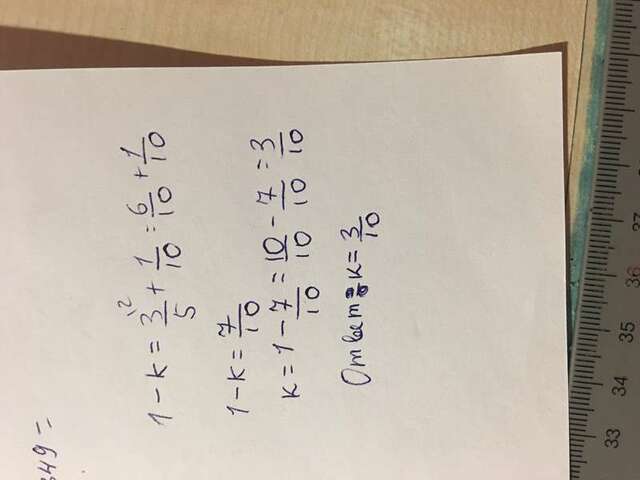 349 =
1 - k = 3/5 \2 + 1/10 = 6/10 + 1/10
1 - k = 7/10
k = 1 - 7/10 = 10/10 - 7/10 = 3/10
Ответ: k = 3/10
33 34 35 36 37